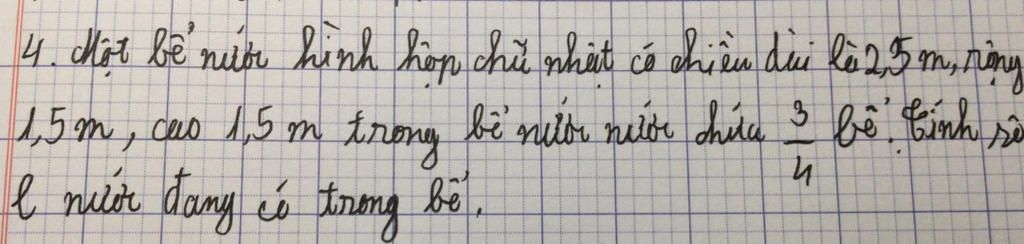 4. Một bể nước hình hộp chữ nhật có chiều dài là 2,5 m, rộng
1,5 m, cao 1,5 m trong bể nước nước chứa 3/4 bể. Tính số
l nước đang có trong bể.